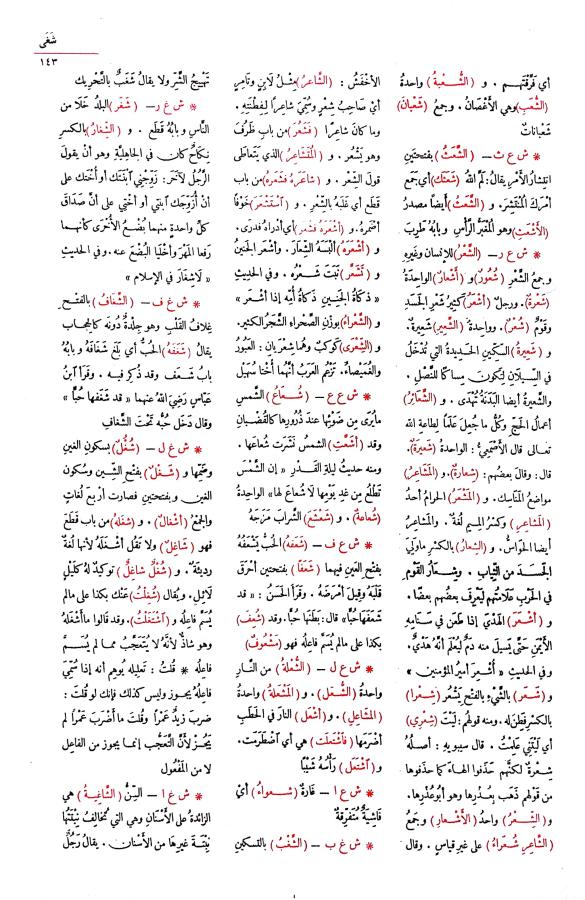 شَغَى
١٤٣
أي فَرَّقَتْهم . و (الشُّعْبةُ) واحدةُ
(الشُّعَبِ) وهي الأَغْصان . وجمعُ (شَعْبانَ)
شَعْباناتٌ
* ش ع ث — (الشَّعَثُ) بفتحتين
انتشارُ الأَمْرِ يقالُ: لَمَّ اللهُ (شَعَثَك) أي جمع
أمرَك المنْتَشِرَ . و (الشَّعَثُ) أيضا مصدرُ
(الأَشْعَثِ) وهو المُغْبَرُّ الرَّأْسِ وبابُه طَرِبَ
* ش ع ر — (الشَّعْرُ) للإنسان وغيرِه
وجمعُ الشَّعْرِ (شُعُورٌ) و (أَشْعارٌ) الواحدةُ
(شَعْرةٌ) . ورجلٌ (أَشْعَرُ) كثيرُ شَعْرِ الجَسَدِ
وقَوْمٌ (شُعْرٌ) . وواحدةُ (الشَّعيرِ) شَعِيرةٌ .
و (شَعِيرةُ) السِّكِّينِ الحَدِيدةُ التي تُدْخَلُ
في السِّيلَانِ لتكونَ مِسَاكًا للنَّصْلِ .
والشَّعيرةُ أيضا البَدَنَةُ تُهْدَى . و (الشَّعَائِرُ)
أعمالُ الحَجِّ وكلُّ ما جُعِل عَلَمًا لِطَاعةِ اللهِ
تعالى قال الأَصْمَعِيُّ: الواحدةُ (شَعِيرةٌ).
قال: وقال بعضُهم: (شِعارةٌ). و (المَشَاعِرُ)
مواضعُ المَنَاسِك . و (المَشْعَرُ) الحرامُ أحدُ
(المَشاعِرِ) وكسْرُ الميم لُغةٌ . والمَشاعِرُ
أيضا الحَواسُّ. و (الشِّعارُ) بالكسْرِ ما وَلِيَ
الجَسَدَ من الثِّياب . وشِعارُ القَوْمِ
في الحَرْبِ عَلَامتُهم لِيَعْرِفَ بعضُهم بعضا.
و (أَشْعَرَ) الهَدْيَ إذا طَعَن في سَنامِهِ
الأَيْمَنِ حتى يَسِيلَ منه دَمٌ لِيُعْلَم أنَّه هَدْيٌ.
وفي الحديث «أُشْعِرَ أميرُ المؤمنين»
و (شَعَرَ) بالشَّيْء بالفتْحِ يَشْعُر (شِعْرا)
بالكسْرِ فَطِنَ له . ومنه قولُهم: لَيْتَ (شِعْري)
أي لَيْتَنِي عَلِمْتُ . قال سيبويه : أصلُه
شِعْرةٌ لكنَّهم حَذَفوا الهاءَ كما حذَفوها
من قولِهم ذَهَب بِعُذْرِها وهو أبو عُذْرِها.
و (الشِّعْرُ) واحدُ (الأَشْعارِ) وجمعُ
(الشَّاعرِ شُعَراءُ) على غيرِ قِياسٍ . وقال
الأَخْفَشُ : (الشاعرُ) مِثْلُ لَابِنٍ وتَامِرٍ
أيْ صاحبُ شِعْرٍ وسُمِّيَ شاعِرًا لِفِطْنَتِهِ .
وما كان شاعرًا (فَشَعُرَ) من بابِ ظَرُفَ
وهو يَشْعُر . و (المُتَشَاعِرُ) الذي يَتَعاطَى
قولَ الشِّعْرِ . و (شاعَرهُ فشَعَرهُ) من باب
قَطَع أي غَلَبَه بالشِّعْر . و (اسْتَشْعَرَ) خَوْفًا
أضْمَرهُ. و (أَشْعَرَهُ فشَعَر) أي أَدْراهُ فَدَرَى.
و (أشْعَرَهُ) أَلْبَسَهُ الشِّعارَ . وأَشْعَر الجَنينُ
و (تَشَعَّرَ) نَبَتَ شَعْرُهُ . وفي الحديثِ
«ذَكاةُ الجَنينِ ذَكاةُ أُمِّهِ إذا أَشْعَر»
و (الشَّعْراءُ) بوزْنِ الصَّحْراءِ الشَّجَرُ الكثير.
و (الشِّعْرَى) كوكَبٌ وهما شِعْرَيانِ: العَبُورُ
والغُمَيْصاءُ. تَزْعُم العَرَبُ أنَّهُما أُخْتا سُهَيْل
* ش ع ع — (شُعَاعُ) الشَّمسِ
ما يُرَى من ضَوْئِها عندَ ذُرُورِها كالقُضْبانِ
وقد (أَشَعَّتِ) الشمسُ نَشَرَتْ شُعاعَها .
ومنه حديثُ ليلةِ القَدْرِ «إن الشَّمسَ
تَطْلُعُ مِن غَدِ يَوْمِها لا شُعاعَ لها» الواحدةُ
(شُعاعةٌ) . و (شَعْشَعَ) الشَّرابَ مَزَجَهُ
* ش ع ف — (شَعَفَهُ) الحُبُّ يَشْعَفُهُ
بفتحِ العَينِ فيهما (شَعَفًا) بفتحتين أَحْرَقَ
قَلْبَهُ وقِيلَ أَمْرَضَهُ . وقَرأَ الحسَنُ: «قد
شَعَفَها حُبًّا» قال: بَطَنَها حُبًّا. وقد (شُعِفَ)
بكذا على مالم يُسَمَّ فاعلُه فهو (مَشْعُوفٌ)
* ش ع ل — (الشُّعْلةُ) من النَّار
واحدةُ (الشُّعَلِ) . و (المَشْعَلةُ) واحدةُ
(المَشَاعِلِ) . و (أَشْعَل) النارَ في الحَطَبِ
أَضْرَمَها (فاشْتَعَلَتْ) هي أي اضْطَرَمَتْ.
و (اشْتَعَل) رَأْسُهُ شَيْبًا
* ش ع ا — غَارةٌ (شَعواءُ) أيْ
فاشِيَةٌ مُتَفَرِّقةٌ
* ش غ ب — (الشَّغْبُ) بالتسكينِ
تَهْيِيجُ الشَّرِّ ولا يقالُ شَغَبٌ بالتَّحريكِ
* ش غ ر — (شَغَر) البلدُ خَلَا من
النَّاسِ وبابُهُ قَطَع . و (الشِّغارُ) بالكسرِ
نِكاحٌ كان في الجاهِليَّةِ وهو أنْ يقولَ
الرَّجُلُ لآخَرَ: زوِّجْنِي ابْنَتَك أو أُخْتَك على
أنْ أُزَوِّجَك ابنَتِي أو أختِي على أنَّ صَدَاقَ
كلِّ واحدةٍ منهما بُضْعُ الأُخْرَى كأنهما
رَفعا المَهْرَ وأخْلَيا البُضْعَ عنه . وفي الحديثِ
«لَا شِغارَ في الإِسلام»
* ش غ ف — (الشَّغافُ) بالفتْحِ
غِلافُ القَلْبِ وهو جِلْدةٌ دُونَهُ كالحِجابِ
يقالُ (شَغَفَهُ) الحُبُّ أي بَلَغ شَغَافَهُ وبابُهُ
بابُ شَعَف وقد ذُكِر فيه . وقرأ ابنُ
عبَّاسٍ رَضِيَ اللهُ عنهما «قد شغَفها حُبًّا»
وقال دَخَل حُبُّه تَحْتَ الشَّغافِ
* ش غ ل — (شُغُلٌ) بسكونِ الغين
وضَمِّها و (شَغْلٌ) بفتْح الشِّينِ وسُكونِ
الغينِ وبفتحتينِ فصارت أرْبعَ لُغاتٍ
والجَمْعُ (أشْغالٌ) . و (شغَلهُ) من بابِ قَطَعَ
فهو (شَاغِلٌ) ولا تَقُل أشْغَلَهُ لأنها لُغةٌ
رديئةٌ . و (شُغْلٌ شاغِلٌ) توكيدٌ له كَلَيْلٍ
لَائِلٍ . ويُقال (شُغِلْتُ) عنك بكذا على مالم
يُسَمَّ فاعلُه و (اشْتَغَلْتُ) . وقد قالوا ما أَشْغَلَهُ
وهو شاذٌّ لأنَّهُ لا يُتعَجَّبُ مما لم يُسَمَّ
فاعلُه * قلتُ : تعليلُه يوهم أنه إذا سُمِّيَ
فاعلُهُ يجوز وليس كذلك فإنك لو قلتَ :
ضرَب زيدٌ عَمْرًا وقلتَ ما أَضْرَبَ عَمْرًا لم
يَجُز لأنَّ التَّعَجُّبَ إنما يجوز من الفاعل
لا من المَفْعول
* ش غ ا — السِّنُّ (الشَّاغِيةُ) هي
الزائدةُ على الأَسْنانِ وهي التي تُخالِفُ نِبْتَتُها
نِبْتةَ غيرِها من الأَسْنان . يقالُ رَجُلٌ